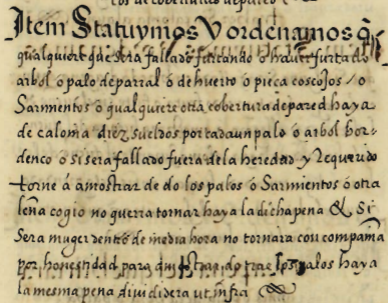 tos de cobertura de pared
Item Statuymos Y ordenamos q̄
qualquiere que sera fallado furtando o hauer furtado
arbol o palo de parral o de huerto o pieca coscojos / o
Sarmientos o qualquiere otra cobertura de pared haya
de calonia diez sueldos por cada un palo o arbol bor-
denco o si sera fallado fuera de la heredad y Requerido
torne á amostrar de do los palos ó Sarmientos ó otra
leña cogio no querra tornar haya la dicha pena & Si
Sera muger dentro de media hora no tornara con compañia
por honestidad para do trae los palos haya
la mesma pena divididera ut infra